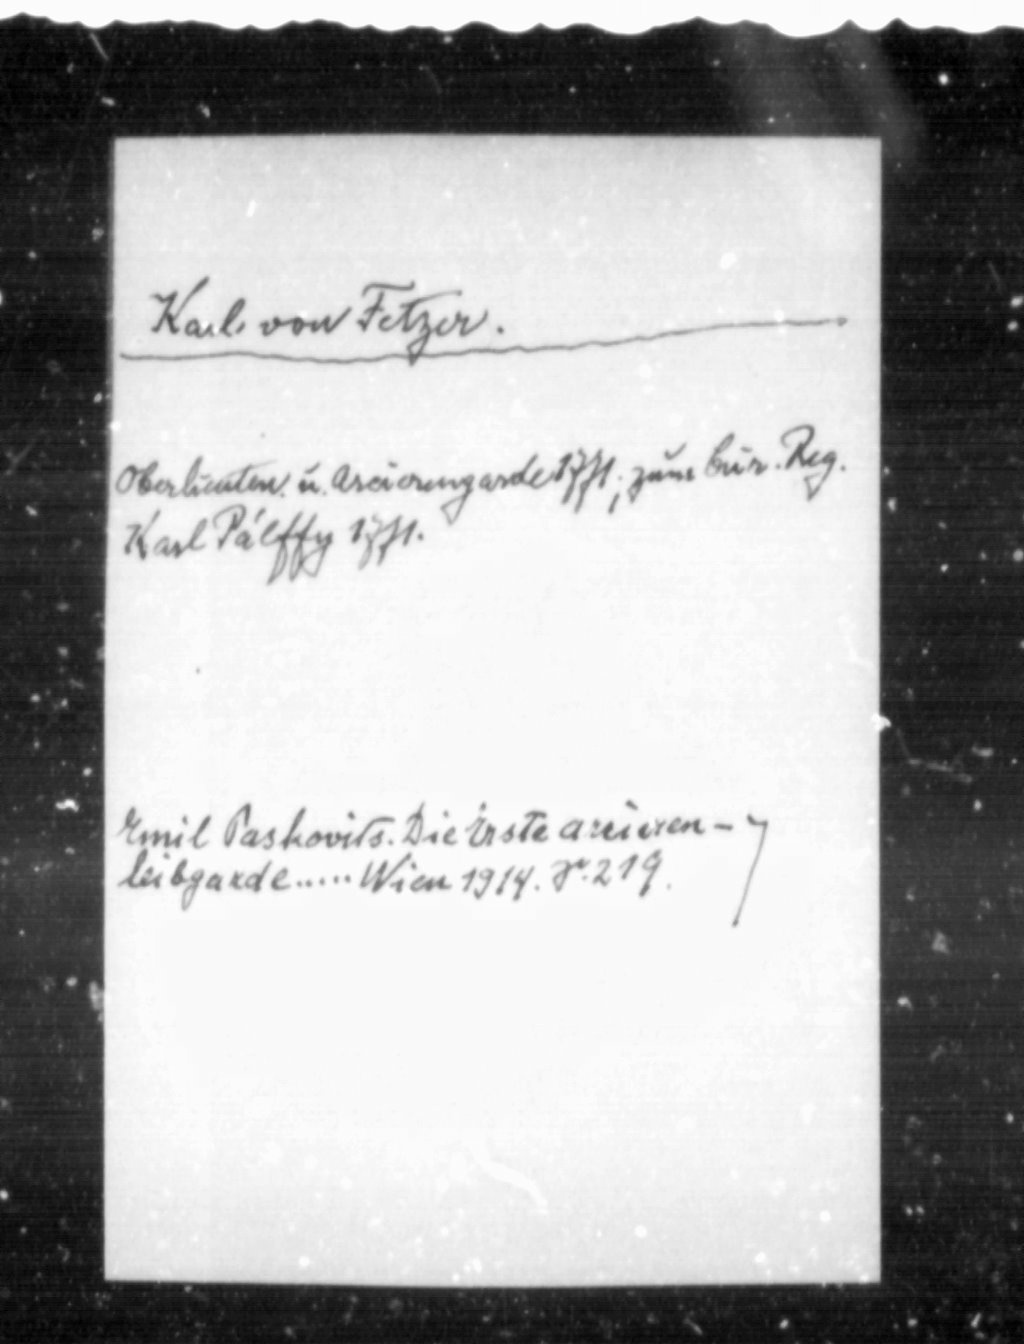 Karl von Fetzer.
Oberlieuten. u. Arcierengarde 1771; zum Cür. Reg.
Karl Pálffy 1771.
Emil Paskovits. Die Erste Arcieren-
leibgarde..... Wien 1914. 219.